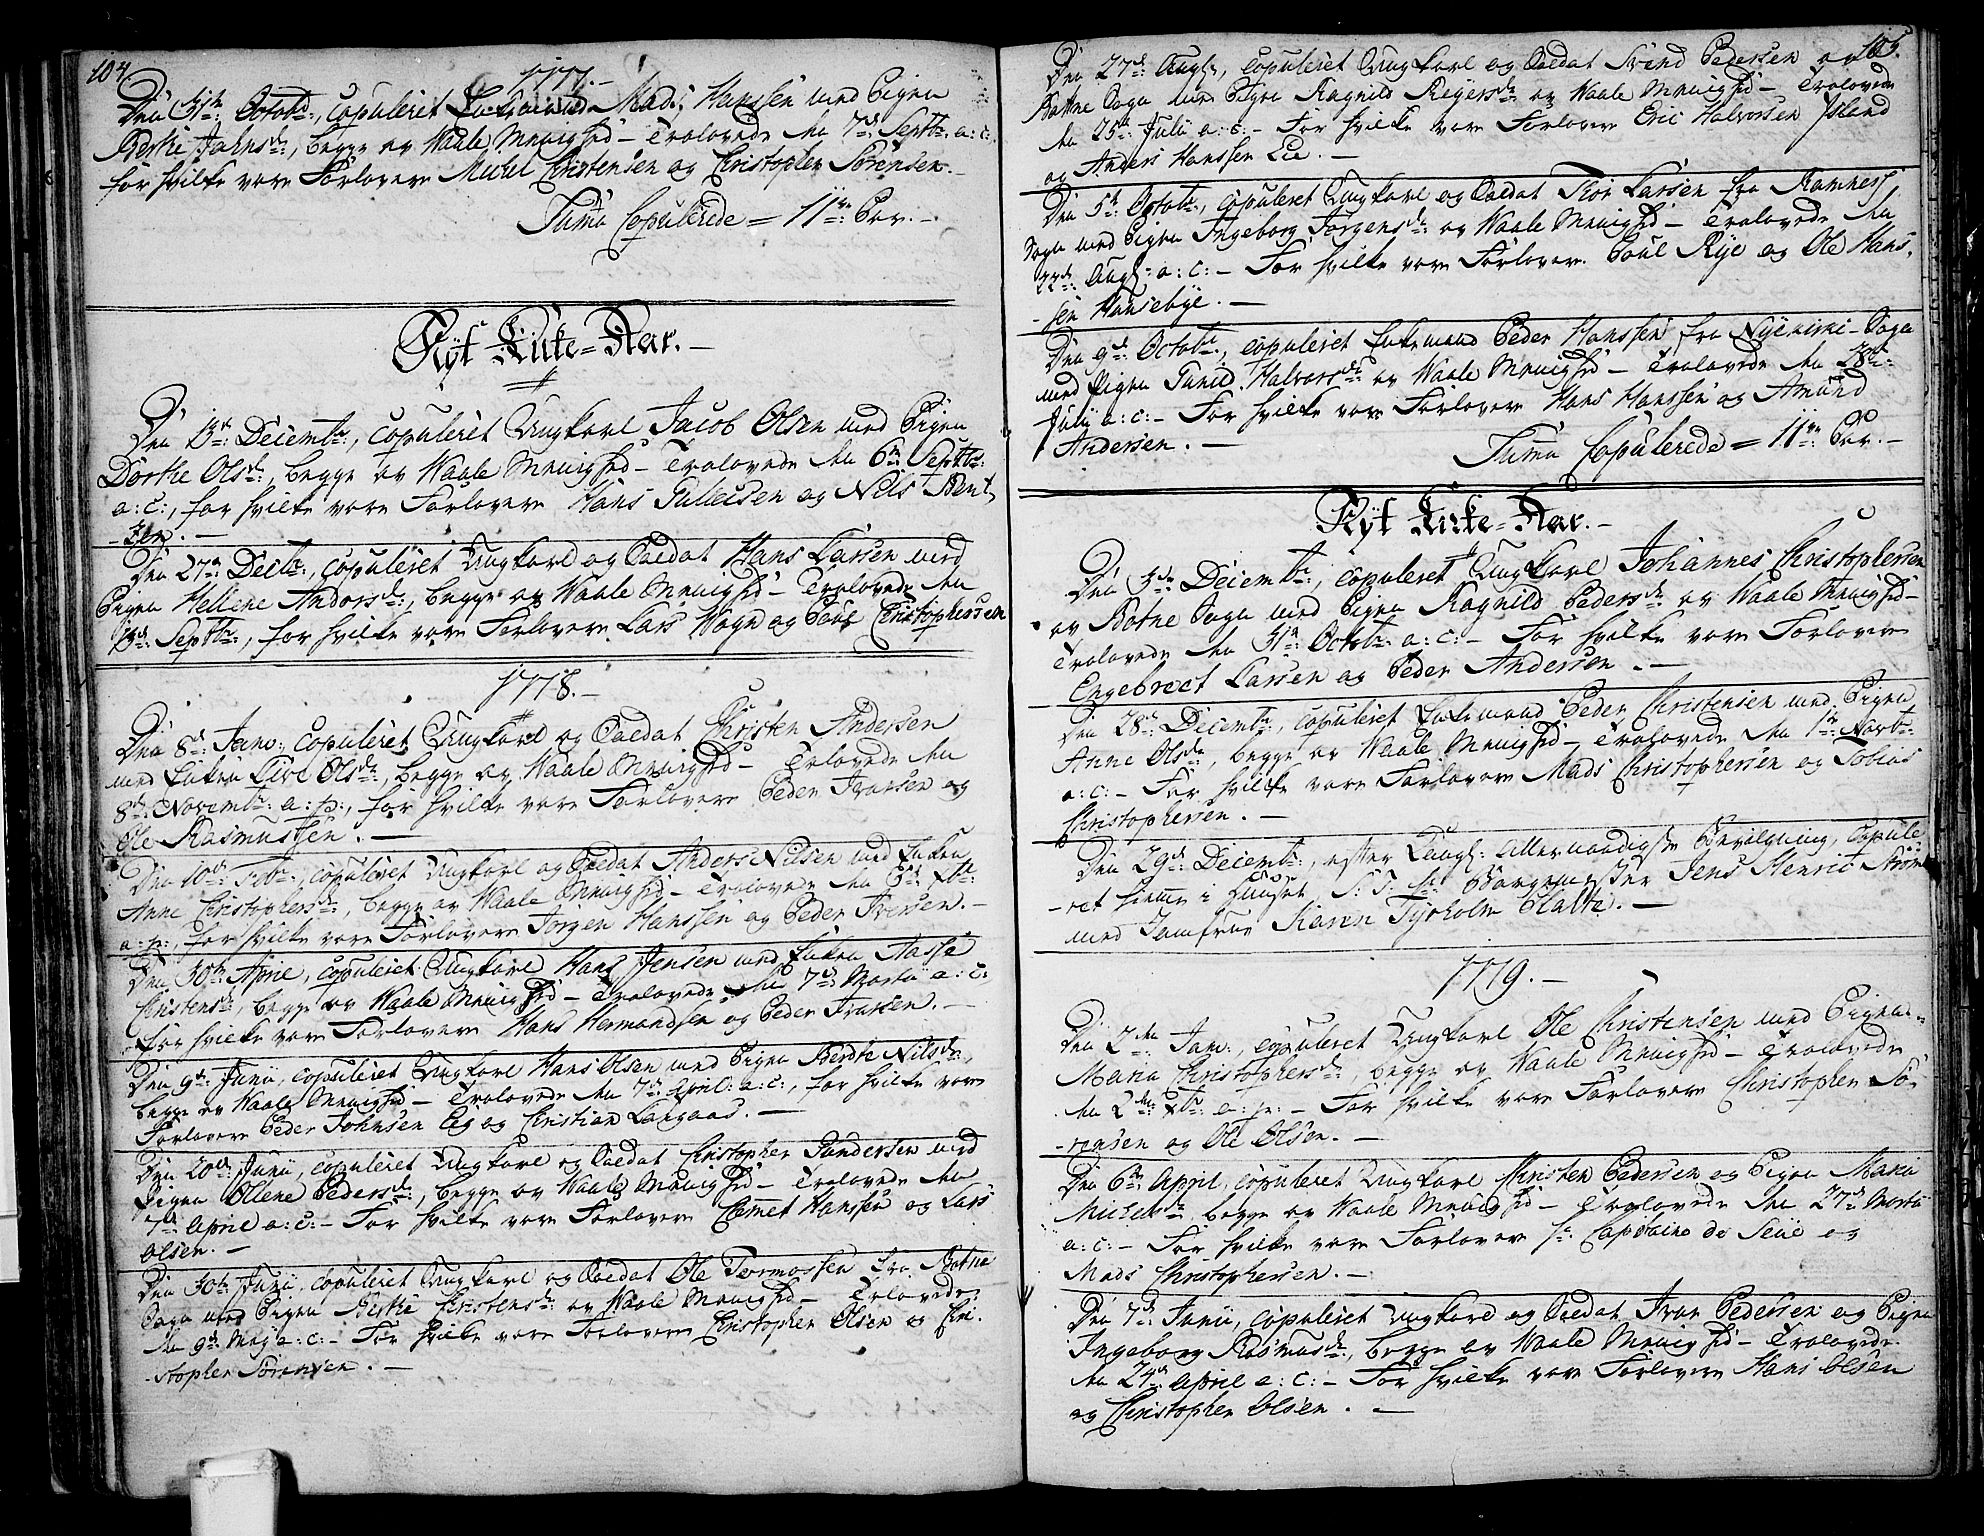 104
1777.-
Den 31te: Octobr:, copuleret Enkemand Mads Hanssen med Pigen
Berthe Jahnsdr:, begge av Waale Menighed - Trolovede den 7de: Septbr: a: c:
for hvilke vare Forlovere Michel Christensen og Christopher Sörensen. -
Suma Copulerede = 11ve: Par. -
Nyt Kirke-Aar. -
Den 13de: Decembr:, copuleret Ungkarl Jacob Olsen med Pigen
Dorthe Olsdr:, begge av Waale Menighed - Trolovede den 6te: Septbr:
a: c:, for hvilke vare Forlovere Hans Tullefsen og Nils Bent-
-zen. -
Den 27de: Decbr:, copuleret Ungkarl og Soldat Hans Larsen med
Pigen Hellene Andersdr:, begge av Waale Menighed - Trolovede den
13de: Septbr:, for hvilke vare Forlovere Lars Hagn og Poul Christophersen
1778. -
Den 8de: Janv:, copuleret Ungkarl og Soldat Christen Andersen
med Enken Live Olsdr:, begge av Waale Menighed - Trolovede den
8de: Novembr: a: p:, for hvilke vare Forlovere Peder Ivarsen og
Ole Rasmussen. -
Den 10de: Febr:, copuleret Ungkarl og Soldat Anders Nilsen med Enken
Anne Christophersdr:, begge av Waale Menighed - Trolovede den 3de: Xbr:
a: p:, for hvilke vare Forlovere Jörgen Hanssen og Peder Iversen. -
Den 30te: April, copuleret Ungkarl Hans Jensen med Enken Aasse
Christensdr:, begge av Waale Menighed - Trolovede den 7de: Martii a: c:
for hvilke vare Forlovere Hans Hermandsen og Peder Ivarsen. -
Den 9de: Junii, copuleret Ungkarl Hans Olsen med Pigen Berthe Nilsdr:,
begge av Waale Menighed - Trolovede den 7de: April: a: c:, for hvilke vare
Forlovere Peder Johnsen Eeg og Christian Langaas. -
Den 20de: Junii, copuleret Ungkarl og Soldat Christopher Gundersen med
Pigen Ollene Pedersdr:, begge av Waale Menighed - Trolovede den
7de: April a: c: - For hvilke vare Forlovere Clemet Hanssen og Lars
Olsen. -
Den 30te: Junii, copuleret Ungkarl og Soldat Ole Tormossen fra Botne
Sogn med Pigen Berthe Christensdr: av Waale Menighed - Trolovede
den 9de: Maj a: c: - For hvilke vare Forlovere Christopher Olsen og Chri-
-stopher Sörensen. -
105.
Den 27de: Augs:, copuleret Ungkarl og Soldat Svend Pedersen av
Bottne Sogn med Pigen Ragnild Reyersdr: av Waale Menighed - Trolovede
den 25de: Julii a: c: - For hvilke vare Forlovere Eric Halvorsen Island
og Anders Hanssen Lie. -
Den 5te: Octobr:, copuleret Ungkarl og Soldat Thor Larsen fra Ramness
Sogn med Pigen Ingeborg Jörgensdr: av Waale Menighed - Trolovede den
22de: Augs: a: c: - For hvilke vare Forlovere Poul Rye og Ole Hans-
-sen Hansebye. -
Den 9de: Octobr:, copuleret Enkemand Peder Hanssen fra Nykirke-Sogn
med Pigen Gunild Halvorsdr: av Waale Menighed - Trolovede den 28de:
Julij a: c: - For hvilke vare Forlovere Hans Hanssen og Amund
Andersen. -
Suma Copulerede = 11ve: Par. -
Nyt Kirke-Aar. -
Den 3de: Decembr:, copuleret Ungkarl Johannes Christophersen
av Botne Sogn med Pigen Ragnild Pedersdr: av Waale Menighed -
Trolovede den 31te: Octobr: a: c: - For hvilke vare Forlovere
Engebrect Larsen og Peder Andersen. -
Den 28de: Decembr:, copuleret Enkemand Peder Christensen med Pigen
Anne Olsdr:, begge av Waale Menighed - Trolovede den 1te: Novbr:
a: c: - For hvilke vare Forlovere Mads Christophersen og Tobias
Christophersen. -
Den 29de: Decembr:, efter Kongl: allernaadigste Bevilgning, copule-
-ret hiemme i Huuset, S: T: Hr: Borgemester Jens Henric Ström
med Jomfrue Karen Tyrholm Blatte. -
1779. -
Den 2den: Janv:, copuleret Ungkarl Ole Christensen med Pigen
Maria Christophersdr:, begge av Waale Menighed - Trolovede
den 2den: Xbr: a: p: - For hvilke vare Forlovere Christopher Sö-
-rensen og Ole Olsen. -
Den 6te: April, copuleret Ungkarl Christen Pedersen og Pigen Maria
Michelsdr:, begge av Waale Menighed - Trolovede den 27de: Martii
a: c: - For hvilke vare Forlovere Hr: Capitaine de Seue og
Mads Christophersen. -
Den 7de: Junii, copuleret Ungkarl og Soldat Ivar Pedersen og Pigen
Ingeborg Rasmusdr:, begge av Waale Menighed - Trolovede
den 24de: April a: c: - For hvilke vare Forlovere Hans Olsen
og Christopher Olsen. -